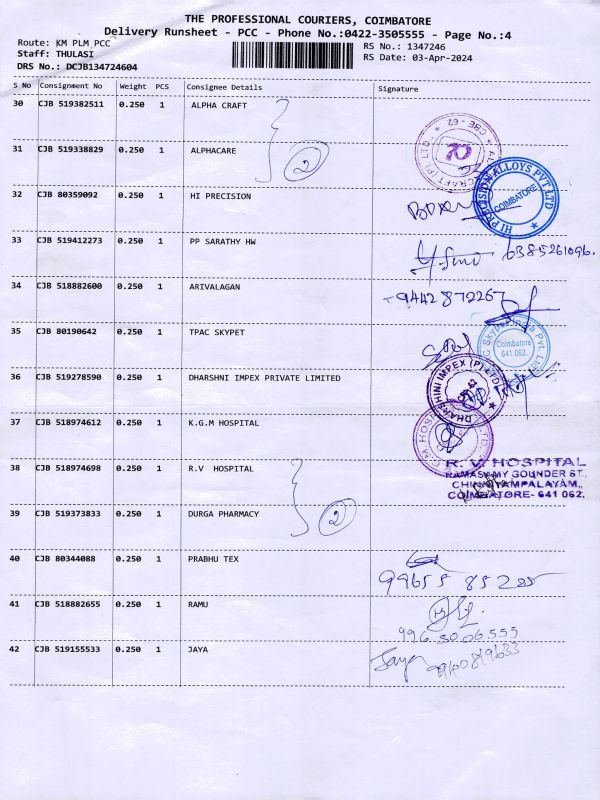 THE PROFESSIONAL COURIERS, COIMBATORE
Delivery Runsheet - PCC - Phone No.:0422-3505555 - Page No.:4
Route: KM PLM PCC
RS No.: 1347246
Staff: THULASI
RS Date: 03-Apr-2024
DRS No.: DCJB134724604
S No Consignment No Weight PCS Consignee Details Signature
30 CJB 519382511 0.250 1 ALPHA CRAFT
31 CJB 519338829 0.250 1 ALPHACARE
2
32 CJB 80359092 0.250 1 HI PRECISION
HI PRECISION ALLOYS PVT LTD
COIMBATORE
33 CJB 519412273 0.250 1 PP SARATHY HW
6385261096.
34 CJB 518882600 0.250 1 ARIVALAGAN
9442872267
35 CJB 80190642 0.250 1 TPAC SKYPET
Coimbatore
641 062.
36 CJB 519278590 0.250 1 DHARSHNI IMPEX PRIVATE LIMITED
DHARSHINI IMPEX (P) LTD
37 CJB 518974612 0.250 1 K.G.M HOSPITAL
38 CJB 518974698 0.250 1 R.V HOSPITAL
R. V. HOSPITAL
RAMASAMY GOUNDER ST.,
CHINNIYAMPALAYAM,
COIMBATORE- 641 062.
39 CJB 519373833 0.250 1 DURGA PHARMACY
2
40 CJB 80344088 0.250 1 PRABHU TEX
41 CJB 518882655 0.250 1 RAMU
996 5006555
42 CJB 519155533 0.250 1 JAYA
Jaya